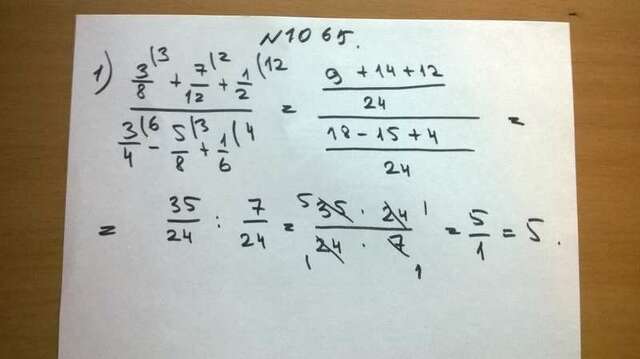 N1065.
1) 3/8 (3 + 7/12 (2 + 1/2 (12 / 3/4 (6 - 5/8 (3 + 1/6 (4 = 9 + 14 + 12 / 24 / 18 - 15 + 4 / 24 =
= 35/24 : 7/24 = 5 35 · 24 1 / 1 24 · 7 1 = 5/1 = 5.